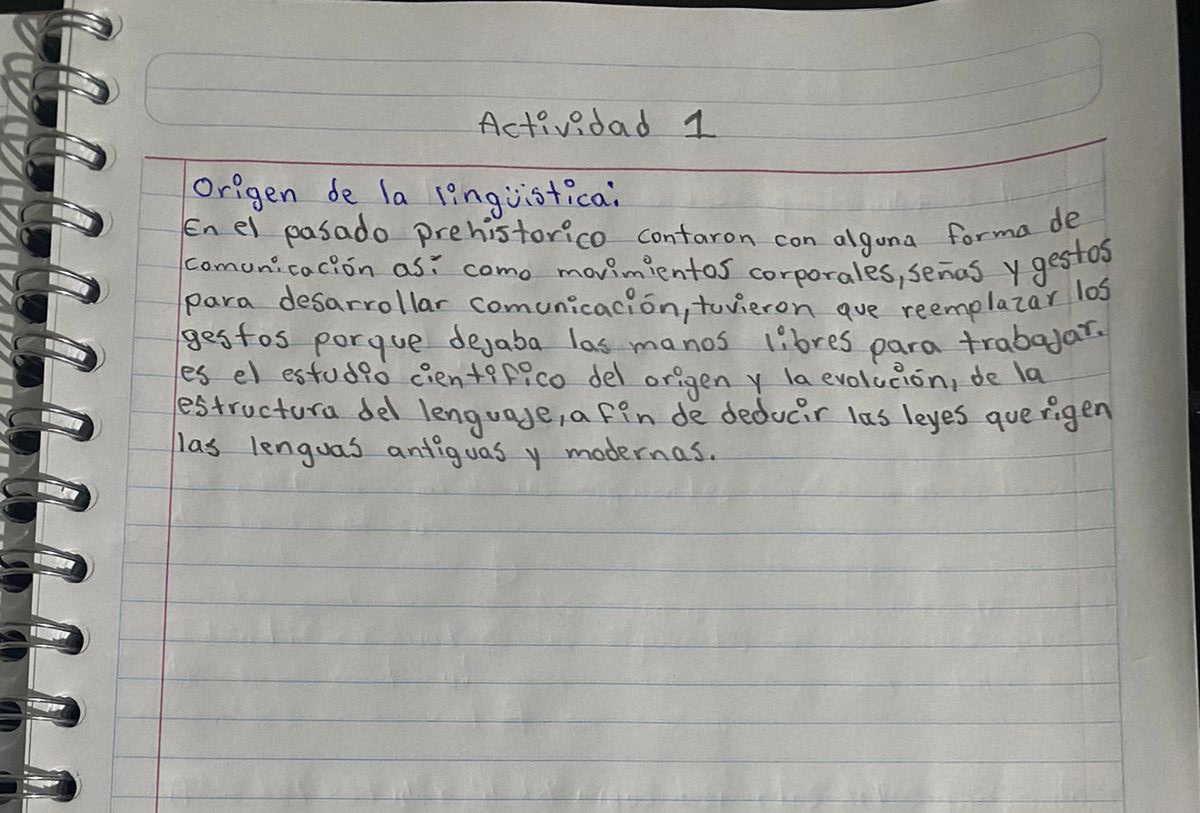 Actividad 1
Origen de la lingüistica:
En el pasado prehistorico contaron con alguna forma de
comunicación así como movimientos corporales, señas y gestos
para desarrollar comunicación, tuvieron que reemplazar los
gestos porque dejaba las manos libres para trabajar.
es el estudio cientifico del origen y la evolución, de la
estructura del lenguaje, a fin de deducir las leyes que rigen
las lenguas antiguas y modernas.